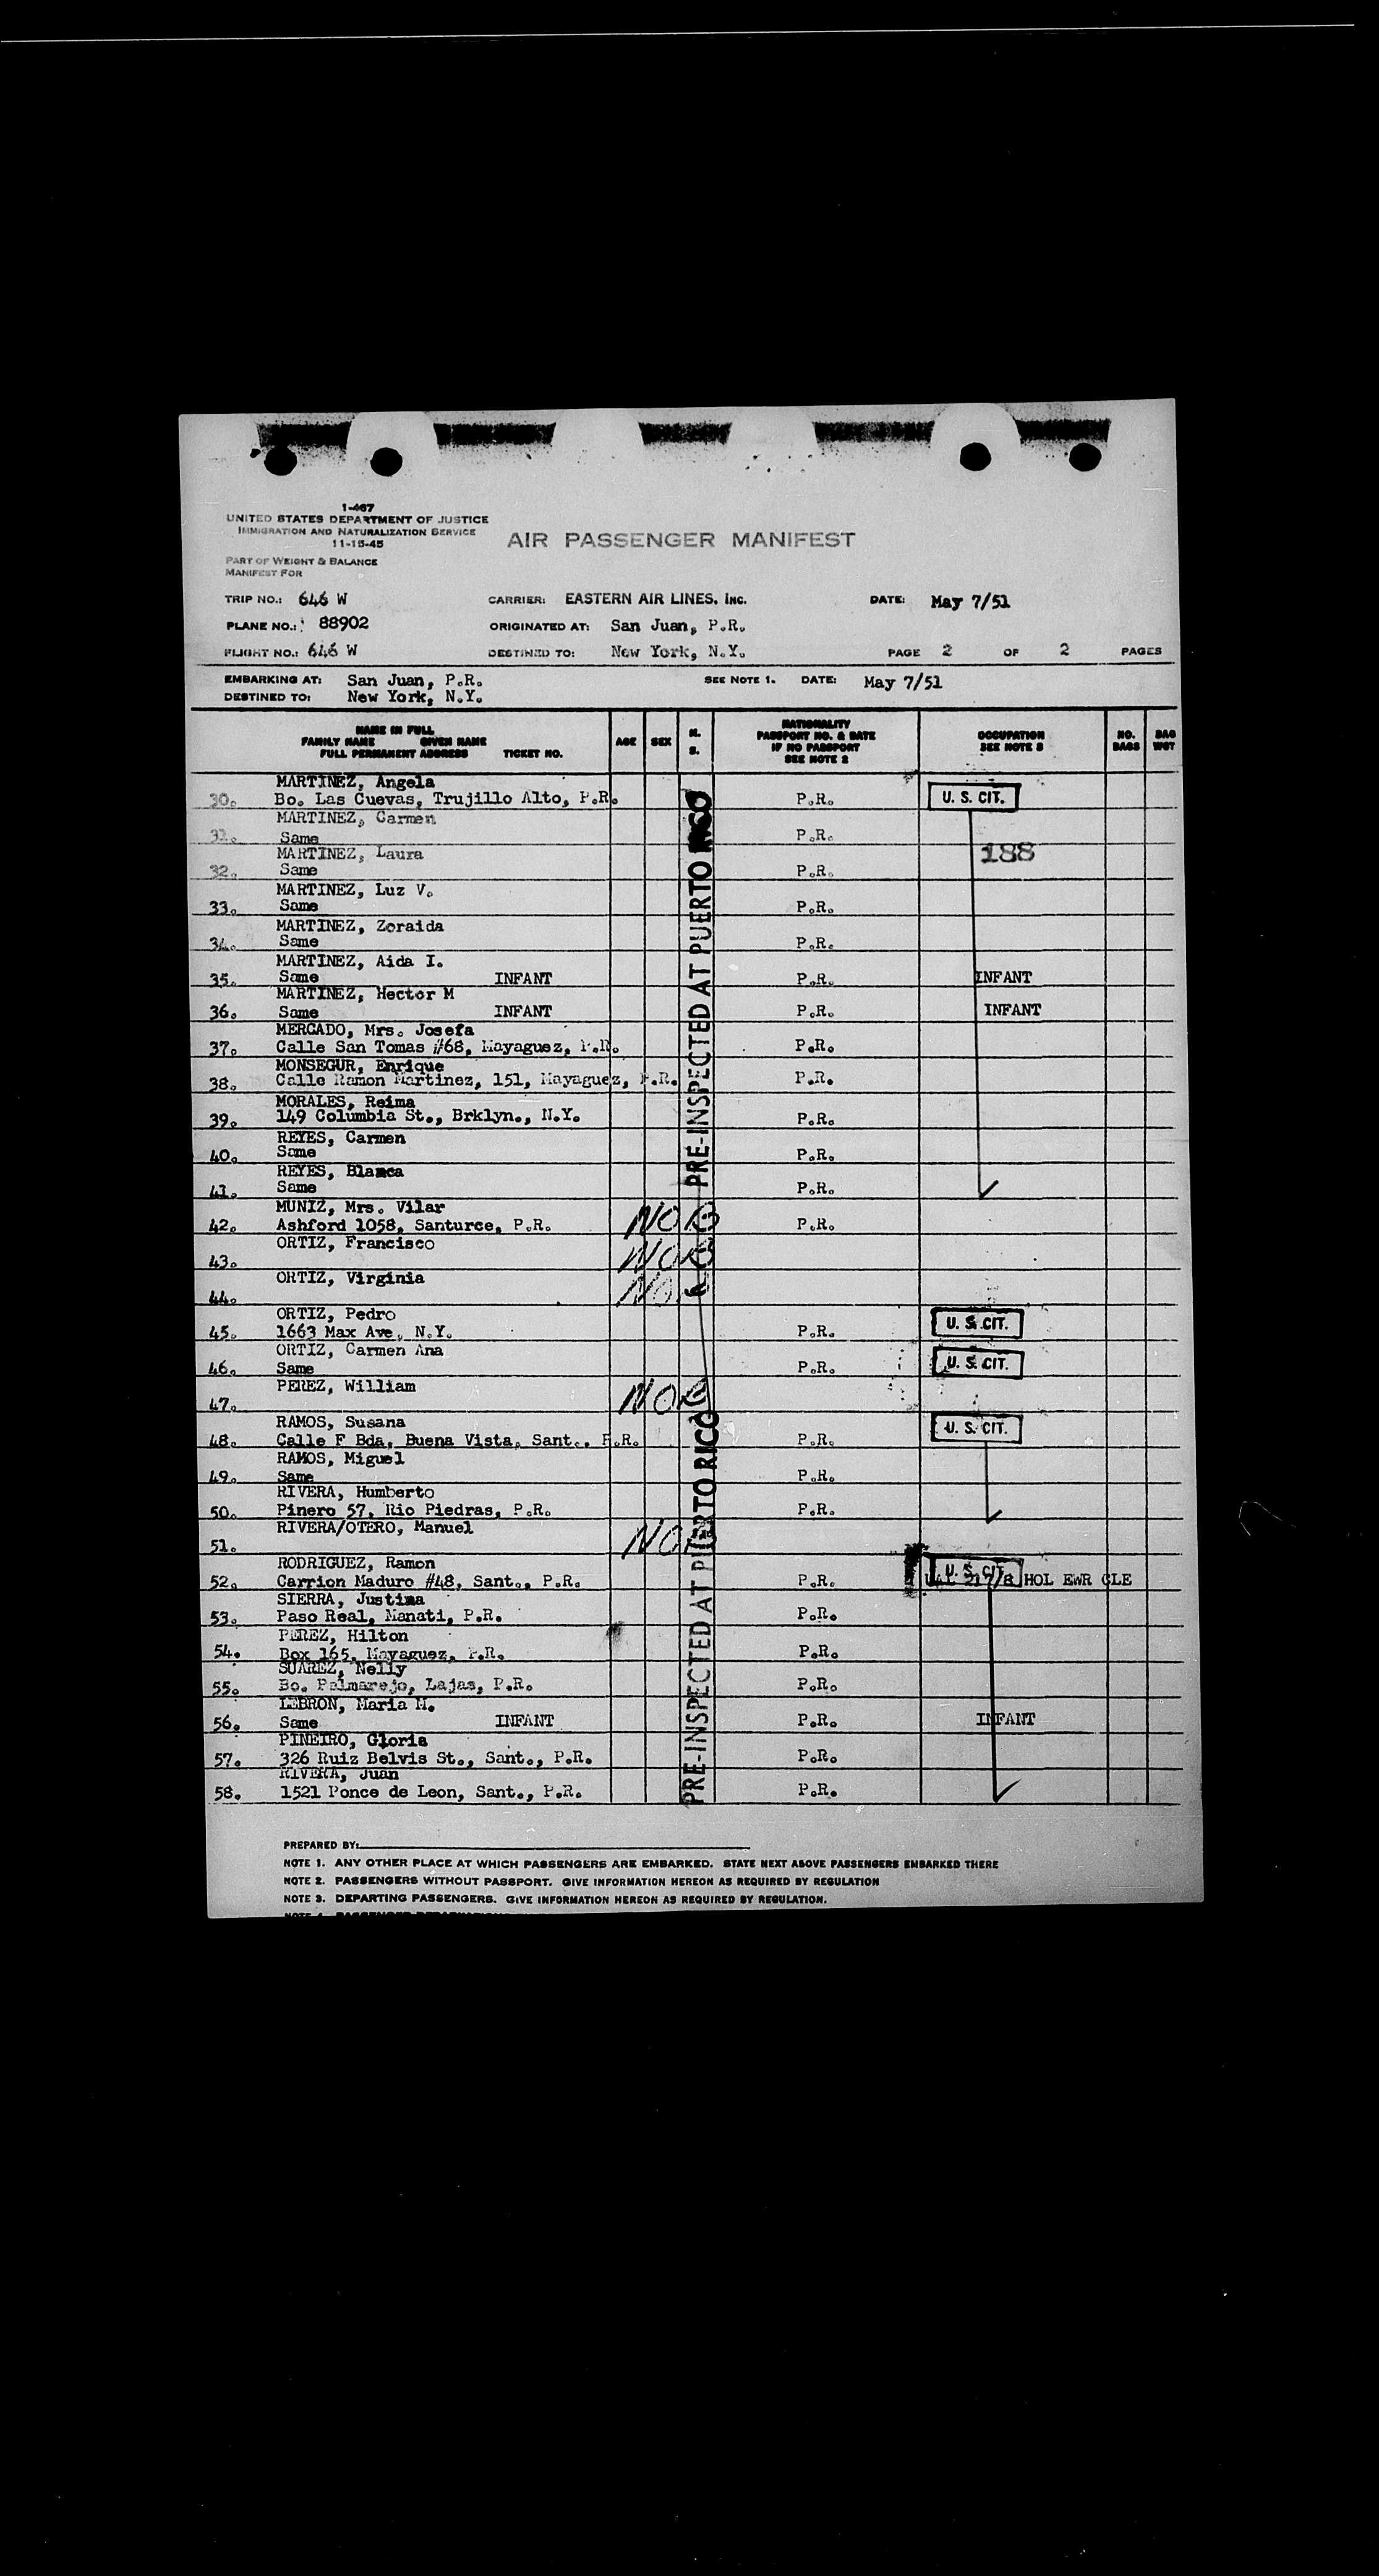 1-467
UNITED STATES DEPARTMENT OF JUSTICE
IMMIGRATION AND NATURALIZATION SERVICE
11-15-45
AIR PASSENGER MANIFEST
PART OF WEIGHT & BALANCE
MANIFEST FOR
TRIP NO.: 646 W CARRIER: EASTERN AIR LINES, Inc. DATE: May 7/51
PLANE NO.: 88902 ORIGINATED AT: San Juan, P.R.
FLIGHT NO.: 646 W DESTINED TO: New York, N.Y. PAGE 2 OF 2 PAGES
EMBARKING AT: San Juan, P.R. SEE NOTE 1. DATE: May 7/51
DESTINED TO: New York, N.Y.
NAME IN FULL
FAMILY NAME GIVEN NAME
FULL PERMANENT ADDRESS TICKET NO.
AGE
SEX
M.
S.
NATIONALITY
PASSPORT NO. & DATE
IF NO PASSPORT
SEE NOTE 2
OCCUPATION
SEE NOTE 3
NO.
BAGS
BAG
WGT
MARTINEZ, Angela
30. Bo. Las Cuevas, Trujillo Alto, P.R. P.R. U. S. CIT.
MARTINEZ, Carmen
31. Same P.R.
188
MARTINEZ, Laura
32. Same P.R.
MARTINEZ, Luz V.
33. Same P.R.
MARTINEZ, Zoraida
34. Same P.R.
MARTINEZ, Aida I.
35. Same INFANT P.R. INFANT
MARTINEZ, Hector M
36. Same INFANT P.R. INFANT
MERCADO, Mrs. Josefa
37. Calle San Tomas #68, Mayaguez, P.R. P.R.
MONSEGUR, Enrique
38. Calle Ramon Martinez, 151, Mayaguez, P.R. P.R.
MORALES, Reima
39. 149 Columbia St., Brklyn., N.Y. P.R.
REYES, Carmen
40. Same P.R.
REYES, Blanca
41. Same P.R.
PRE-INSPECTED AT PUERTO RICO
MUNIZ, Mrs. Vilar
42. Ashford 1058, Santurce, P.R. NO P.R.
ORTIZ, Francisco
43. NO
ORTIZ, Virginia
44. NO
ORTIZ, Pedro
45. 1663 Max Ave, N.Y. P.R. U. S. CIT.
ORTIZ, Carmen Ana
46. Same P.R. U. S. CIT.
PEREZ, William
47. NO
RAMOS, Susana
48. Calle F Bda, Buena Vista, Sant., P.R. P.R. U. S. CIT.
RAMOS, Miguel
49. Same P.R.
RIVERA, Humberto
50. Pinero 57, Rio Piedras, P.R. P.R.
RIVERA/OTERO, Manuel
51. NO
RODRIGUEZ, Ramon
52. Carrion Maduro #48, Sant., P.R. P.R. U. S. CIT. HOL EWR CLE
SIERRA, Justina
53. Paso Real, Manati, P.R. P.R.
PEREZ, Hilton
54. Box 165, Mayaguez, P.R. P.R.
SUAREZ, Nelly
55. Bo. Palmarejo, Lajas, P.R. P.R.
LEBRON, Maria M.
56. Same INFANT P.R. INFANT
PINEIRO, Gloria
57. 326 Ruiz Belvis St., Sant., P.R. P.R.
RIVERA, Juan
58. 1521 Ponce de Leon, Sant., P.R. P.R.
PRE-INSPECTED AT PUERTO RICO
PREPARED BY:
NOTE 1. ANY OTHER PLACE AT WHICH PASSENGERS ARE EMBARKED. STATE NEXT ABOVE PASSENGERS EMBARKED THERE
NOTE 2. PASSENGERS WITHOUT PASSPORT. GIVE INFORMATION HEREON AS REQUIRED BY REGULATION
NOTE 3. DEPARTING PASSENGERS. GIVE INFORMATION HEREON AS REQUIRED BY REGULATION.